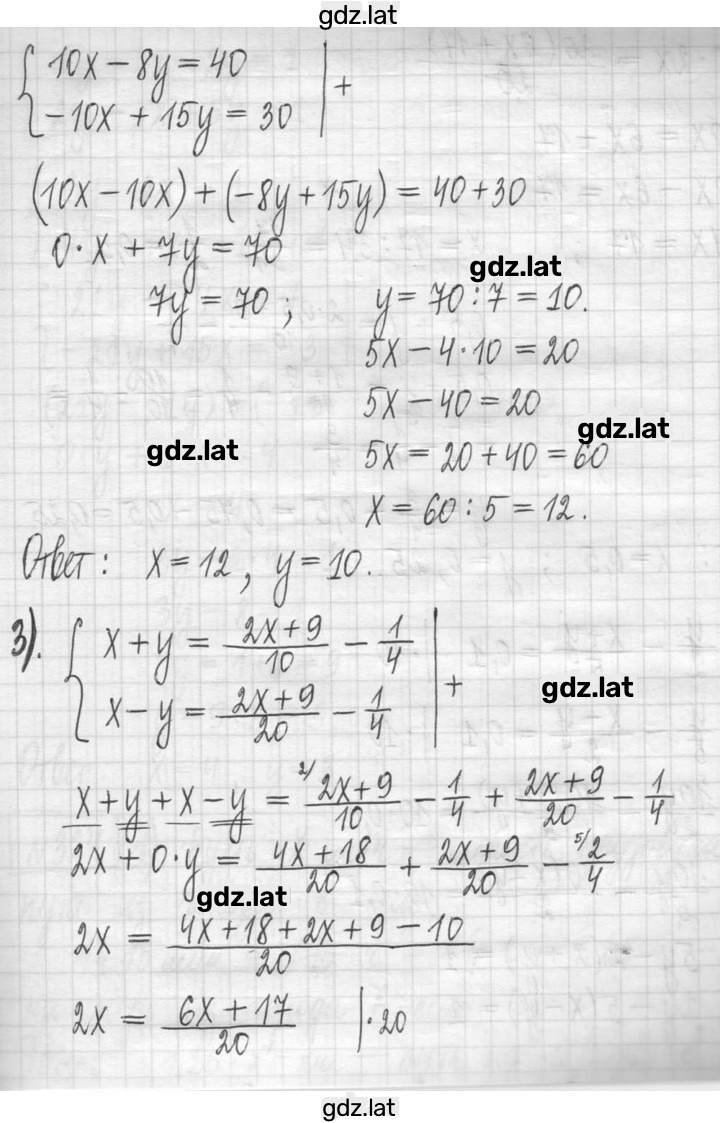 gdz.lat
{ 10x − 8y = 40 | +
{ −10x + 15y = 30 |
(10x − 10x) + (−8y + 15y) = 40 + 30
0 · x + 7y = 70
gdz.lat
7y = 70 ; y = 70 : 7 = 10.
5x − 4 · 10 = 20
5x − 40 = 20
gdz.lat
gdz.lat
5x = 20 + 40 = 60
x = 60 : 5 = 12.
Ответ: x = 12, y = 10.
3). { x + y = (2x + 9)/10 − 1/4 | +
{ x − y = (2x + 9)/20 − 1/4 |
gdz.lat
x + y + x − y = ²⁾ (2x + 9)/10 − 1/4 + (2x + 9)/20 − 1/4
2x + 0 · y = (4x + 18)/20 + (2x + 9)/20 − ⁵⁾ 2/4
gdz.lat
2x = (4x + 18 + 2x + 9 − 10)/20
2x = (6x + 17)/20 | · 20
gdz.lat